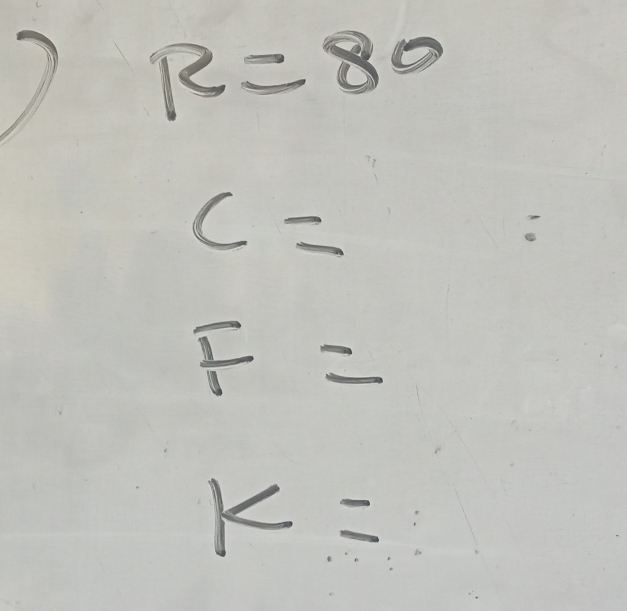 ) R = 80
C =
F =
K =